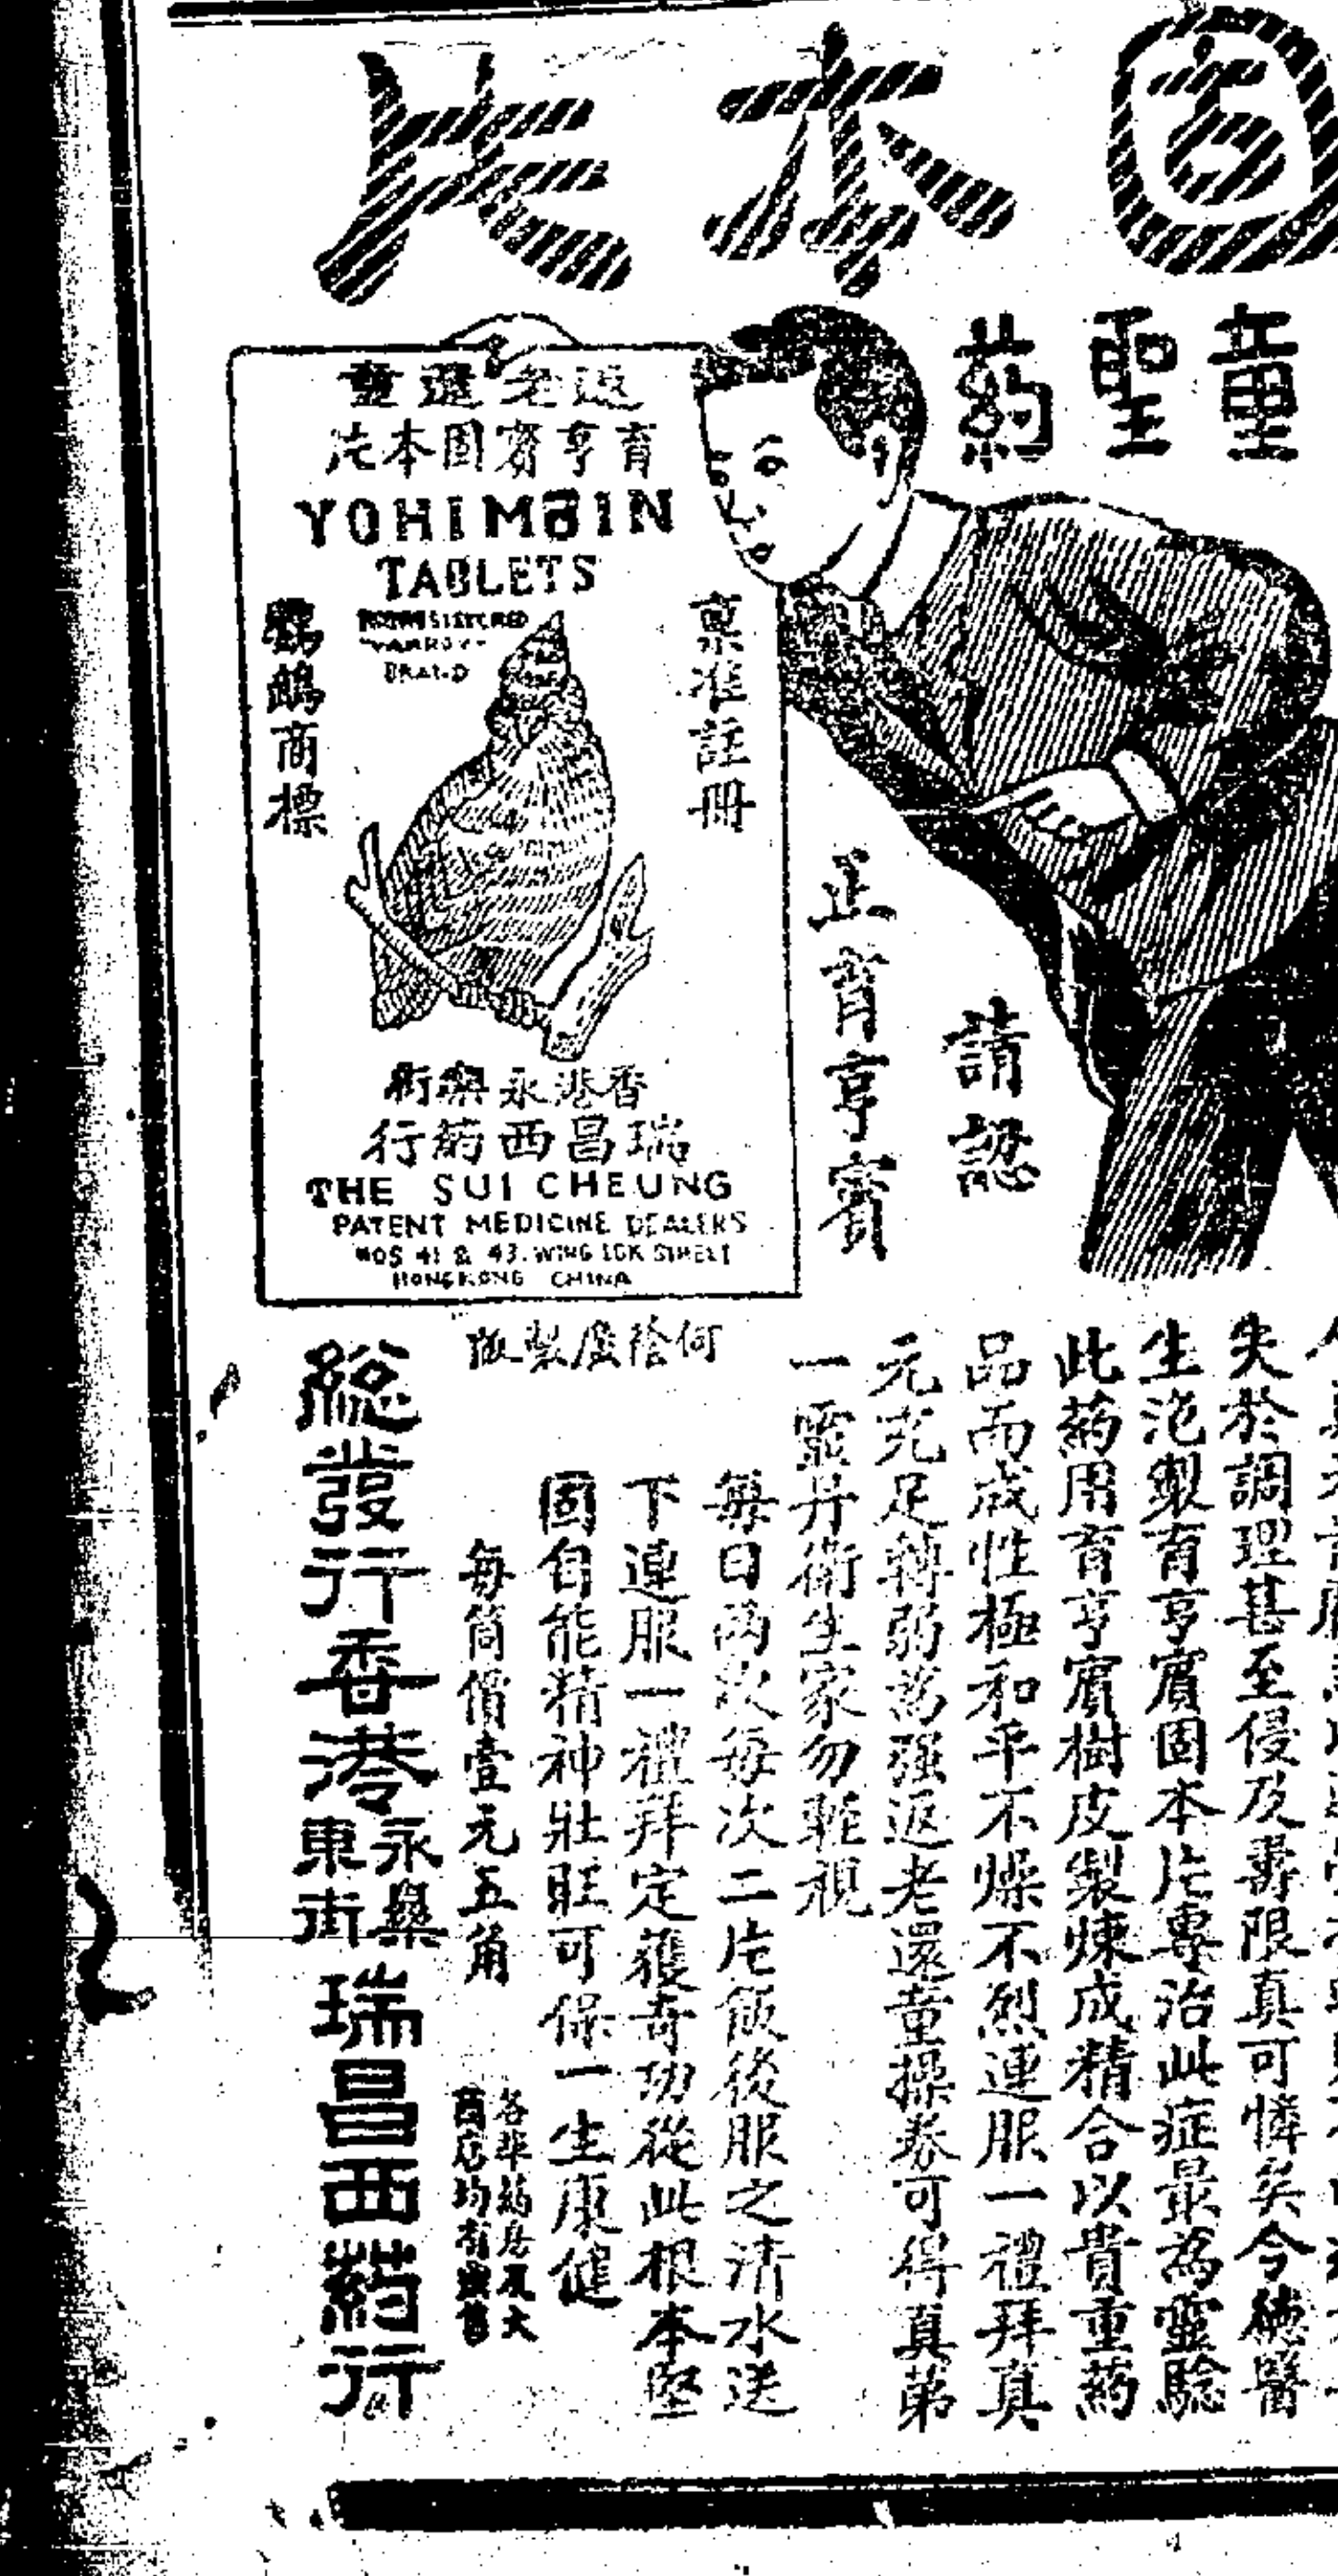 固本片
童聖葯
返老還童
育亨賓固本片
YOHIMBIN
TABLETS
BRAND
稟准註冊
鸚鵡商標
香港永樂街
瑞昌西葯行
THE SUI CHEUNG
PATENT MEDICINE DEALERS
NOS 41 & 43. WING LOK STREET
HONGKONG CHINA
請認
正育亨賓
失於調理甚至侵及壽限真可憐矣今德醫
生泡製育亨賓固本片專治此症最為靈驗
此葯用育亨賓樹皮製煉成精合以貴重葯
品而成性極和平不燥不烈連服一禮拜真
元充足轉弱為强返老還童操券可得真第
一靈丹衛生家勿輕視
每日両次每次二片飯後服之清水送
下連服一禮拜定獲奇功從此根本堅
固自能精神壯旺可保一生康健
每筒價壹元五角
各埠葯房及大
總發行香港永樂東街瑞昌西葯行